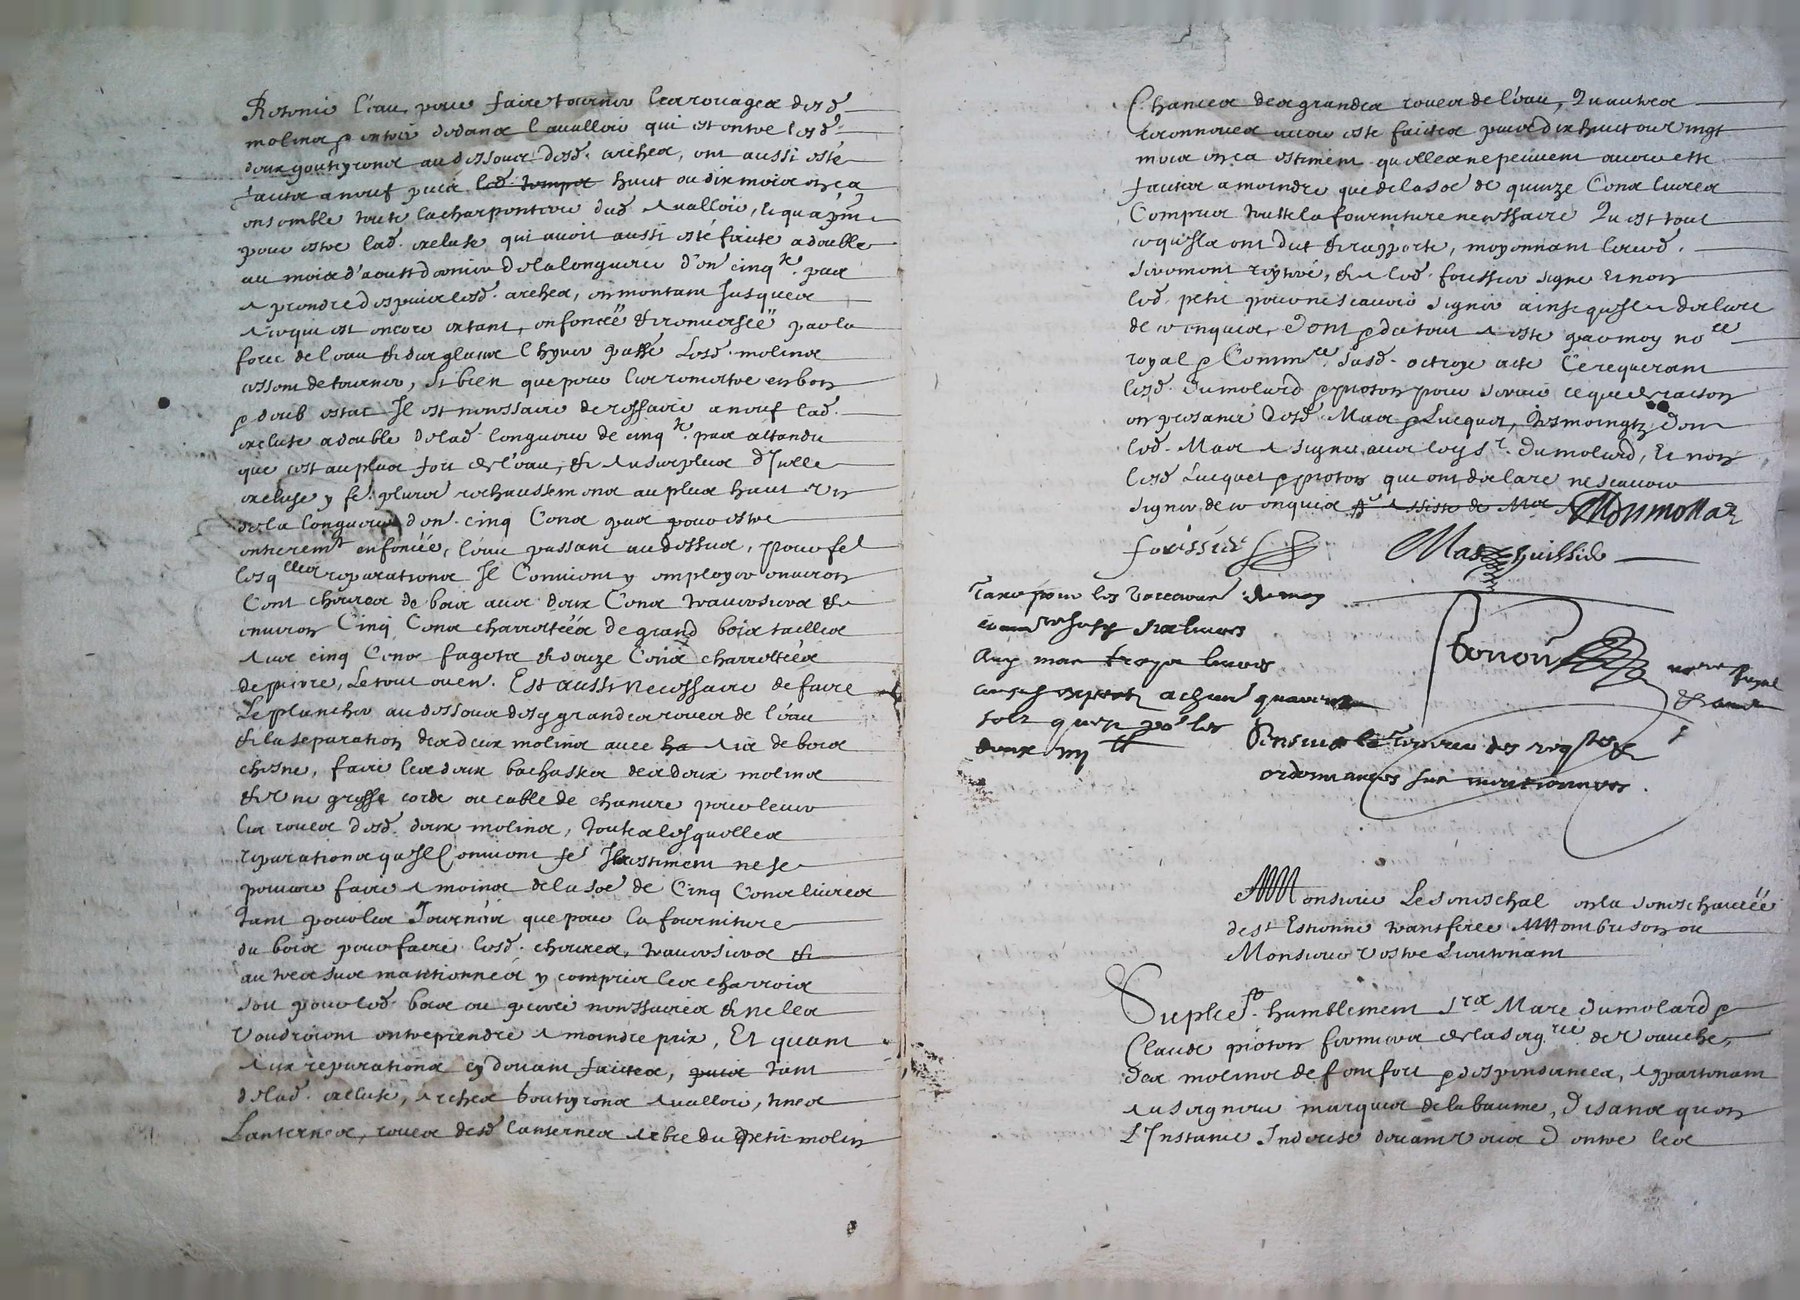 Retenir l'eau pour faire tourner les rouages desd.
molins & entrer dedans l'avalloir qui est entre lesd.
deux goutyrons au dessoux desd. arches, ont aussi esté
faits a neuf puis led. temps huict ou dix mois en ça
ensemble toute la charpenterie dud. avalloir,
pour estre lad. excluse qui avoit aussi esté faicte a double
au mois d'aoust dernier de la longueur d'en. cinq.te pas
a prendre despuis lesd. arches, en montant jusques
a ce qui est encore extant, enfoncéé & renverséé par la
force de l'eau & des glasses l'hyver passé lesd. molins
cessent de tourner, si bien que pour les remettre en bon
& deub estat Il est necessaire de reffaire a neuf lad.
excluse a double de lad. longueur de cinq.te pas attandu
que c'est au plus fort de l'eau, & au surplus d'Icelle
excluse y fe. plusrs rehaussemens au plus haut
de la longueur d'en. cinq cens pas pour estre
entierem.t enfoncéé, l'eau passant au dessus, pour fe.
lesq.lles reparations Il convient y employer environ
Cent chevres de bois avec deux Cens traversiers &
environ Cinq Cens charrettéés de grand bois taillis
avec cinq Cens fagots & douze Cens charrettéés
de pierre, le tout en en. Est aussi necessaire de faire
le plancher au dessoux desd. grandes roues de l'eau
& la separation des deux molins avec ais de bois
chesne, faire les deux bachasses des deux molins
& une grosse corde ou cable de chanvre pour lever
les roues desd. deux molins, toutes lesquelles
reparations qu'Il convient fe. Ils estiment ne se
pouvoir faire a moins de la soe. de Cinq Cens livres
tant pour les Journéés que pour la fourniture
du bois pour faire lesd. chevres, traversiers &
autres sus mantionnés y compris les charrois
soit pour led. bois ou pierre necessaires & ne les
voudroient entreprendre a moindre prix, Et quant
aux reparations cy devant faictes, tant
de lad. excluse, arches boutyrons avalloir,
Lanternes, roues desd. lanternes arbre du petit molin
Chances des grandes roues de l'eau, Qu'autres
recognoues avoir esté faictes puis dix huict ou vingt
mois en ça estiment qu'elles ne peuvent avoir esté
faictes a moindre que de la soe. de quinze Cens livres
Compris toutte la fourniture necessaire Qu'est tout
ce qu'Ils ont dict & rapporté, moyennant leurd.
serement reyteré, & a led. forissier signé Et non
led. petit pour ne sçavoir signer ainsi qu'Il a declaré
de ce enquis, Dont & du tout a esté par moy no.re
royal & Comm.re susd. octroyé acte Ce requerant
lesd. dumolard & pioton pour servir ce que de raison
en presance desd. Mas & Lucquet, tesmoingtz dont
led. Mas a signé avec leys.r dumolard, Et non
lesd. Lucquet & pioton qui ont declaré ne sçavoir
signer de ce enquis
MDumollar
forissier
Mas huissier
Taxé pour les vaccaons de moy
Aux mas troys livres
a chun quarente
solz
deux
Bouon
no.re Royal
Ensuit la teneur des req.tes &
ordonnances sus mentionnees.
A Monsieur Le seneschal en la seneschaucéé
de s.t Estienne transferée A Montbrison ou
Monsieur vostre Lieutenant
Suplie.t humblement s.rs Marc dumolard &
Claude pioton fermiers de la seig.rie de Vauche,
des molins de fontfort & despendances, appartenant
au seigneur marquis de la baume, Disans qu'en
L'Instance Indecise devant vous D'entre les